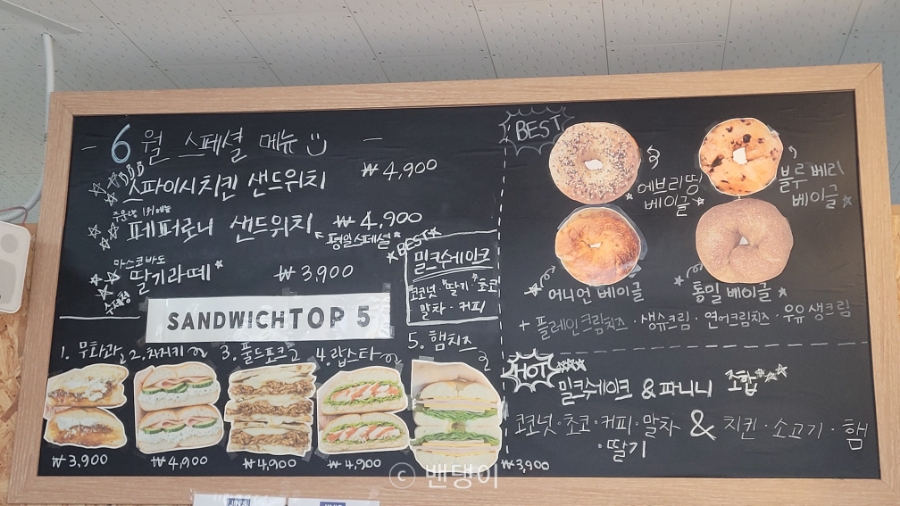 6월 스페셜 메뉴
스파이시치킨 샌드위치 ₩4,900
페퍼로니 샌드위치 ₩4,900
평일스페셜
마스코바도
딸기라떼 ₩3,900
BEST
밀크쉐이크
코코넛·딸기·초코
말차·커피
SANDWICH TOP 5
1. 무화과
2. 차지키
3. 풀드포크
4. 랍스타
5. 햄치즈
₩3,900
₩4,900
₩4,900
₩4,900
₩3,900
BEST
에브리띵
베이글
블루베리
베이글
어니언 베이글
통밀 베이글
+ 플레인크림치즈 · 생크림 · 연어크림치즈 · 우유 생크림
HOT
밀크쉐이크 & 파니니 조합
코코넛·초코·커피·말차 & 치킨·소고기·햄
·딸기
ⓒ 밴댕이